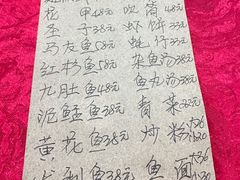 花 甲48元 吹 筒48元
圣 子38元 虾 饼33元
马友鱼58元 蚝 仔33元
红杉鱼58元 杂鱼汤38元
九肚鱼38元 鱼丸汤38元
泥鯭鱼38元 青 菜22元
黄花鱼38元 炒 粉大36 小20
鱼38元 鱼 面大36